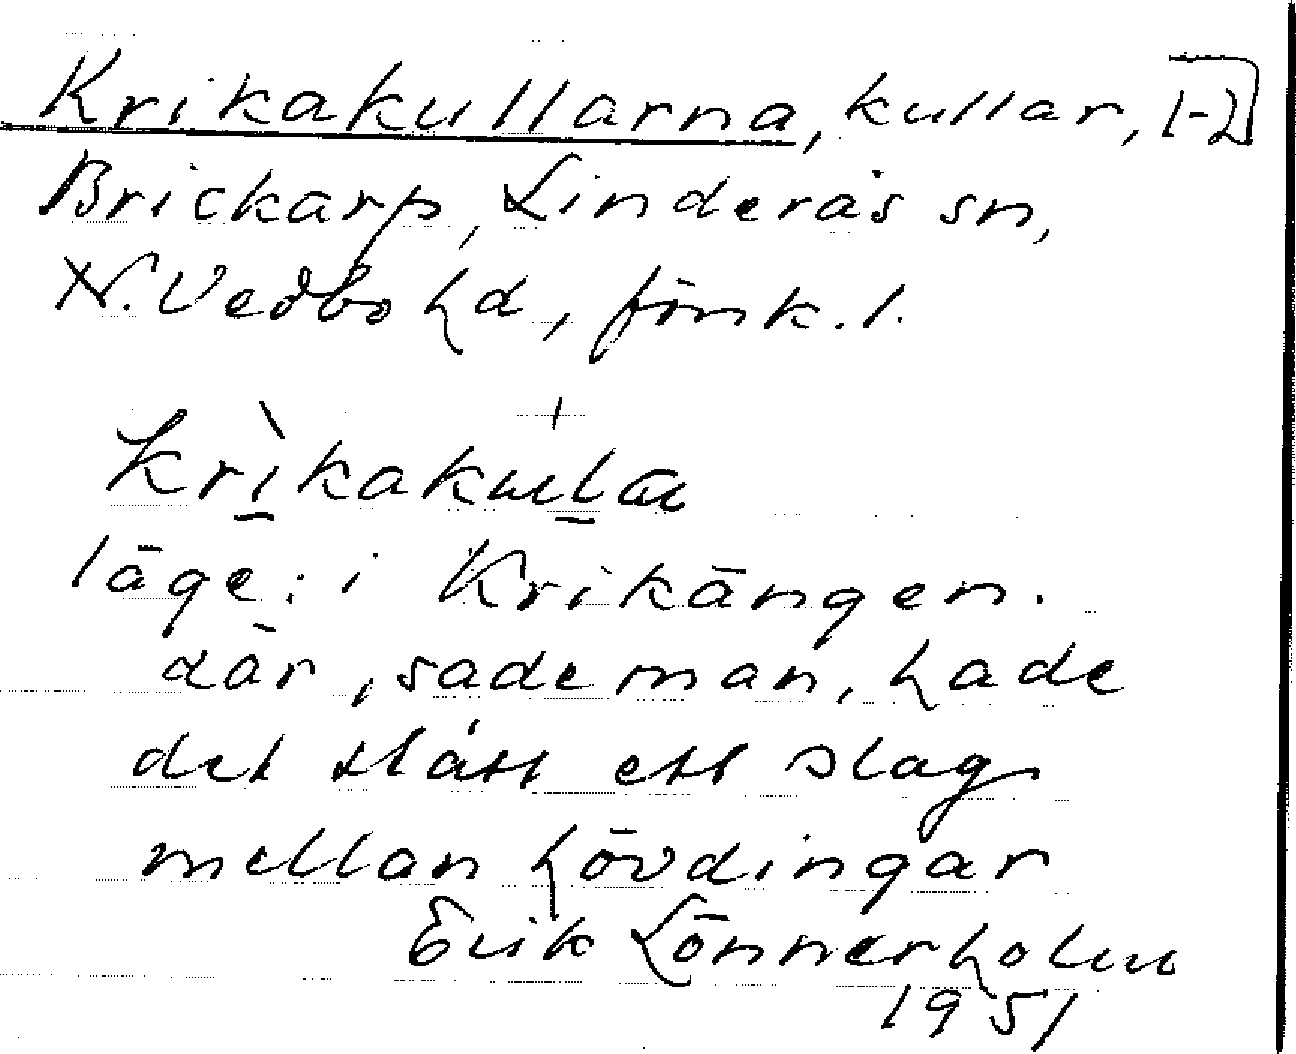 Krikakullarna, kullar, 1-2
Brickarp, Linderås sn,
N. Vedbo hd, Jönk. l.
krìkakulaɶ
läge: i Krikängen.
där, sade man, hade
det stått ett slag
mellan hövdingar
Erik Lönnerholm
1951